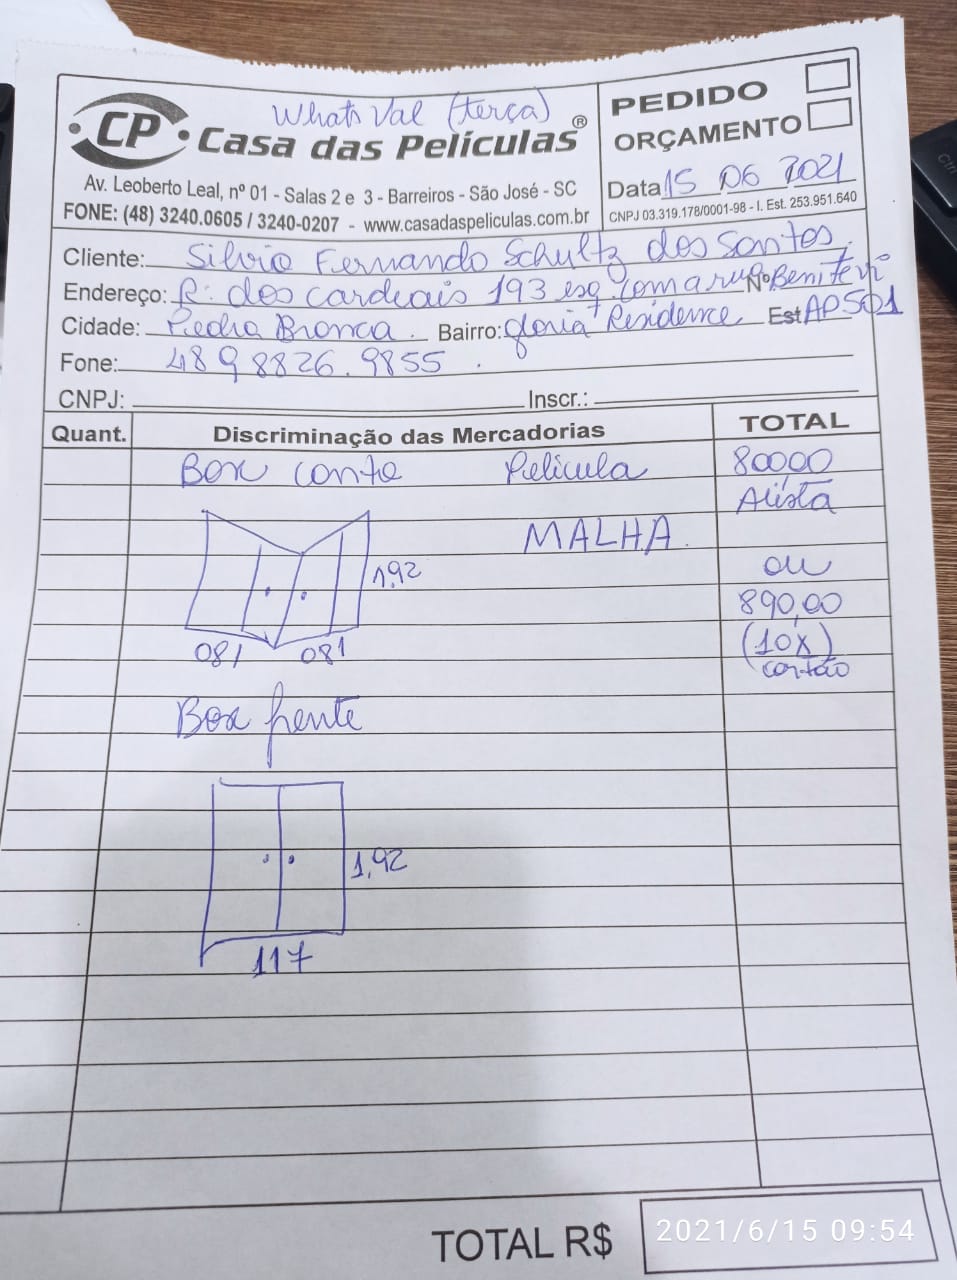 Whats Val (terça)
CP Casa das Películas ®
Av. Leoberto Leal, nº 01 - Salas 2 e 3 - Barreiros - São José - SC
FONE: (48) 3240.0605 / 3240-0207 - www.casadaspeliculas.com.br
PEDIDO
ORÇAMENTO
Data 15 06 2021
CNPJ 03.319.178/0001-98 - I. Est. 253.951.640
Cliente: Silvio Fernando Schultz dos Santos
Endereço: R. dos cardeais 193 esq. com a rua Nº Benitevi
Cidade: Pedra Branca. Bairro: gloria Residence Est AP501
Fone: 48 9 8826.9855.
CNPJ: Inscr.:
Quant. Discriminação das Mercadorias TOTAL
Box canto Película 800,00
Avista
MALHA.
1,92 ou
890,00
081 081 (10x)
cartão
Box frente
1,92
117
TOTAL R$ 2021/6/15 09:54